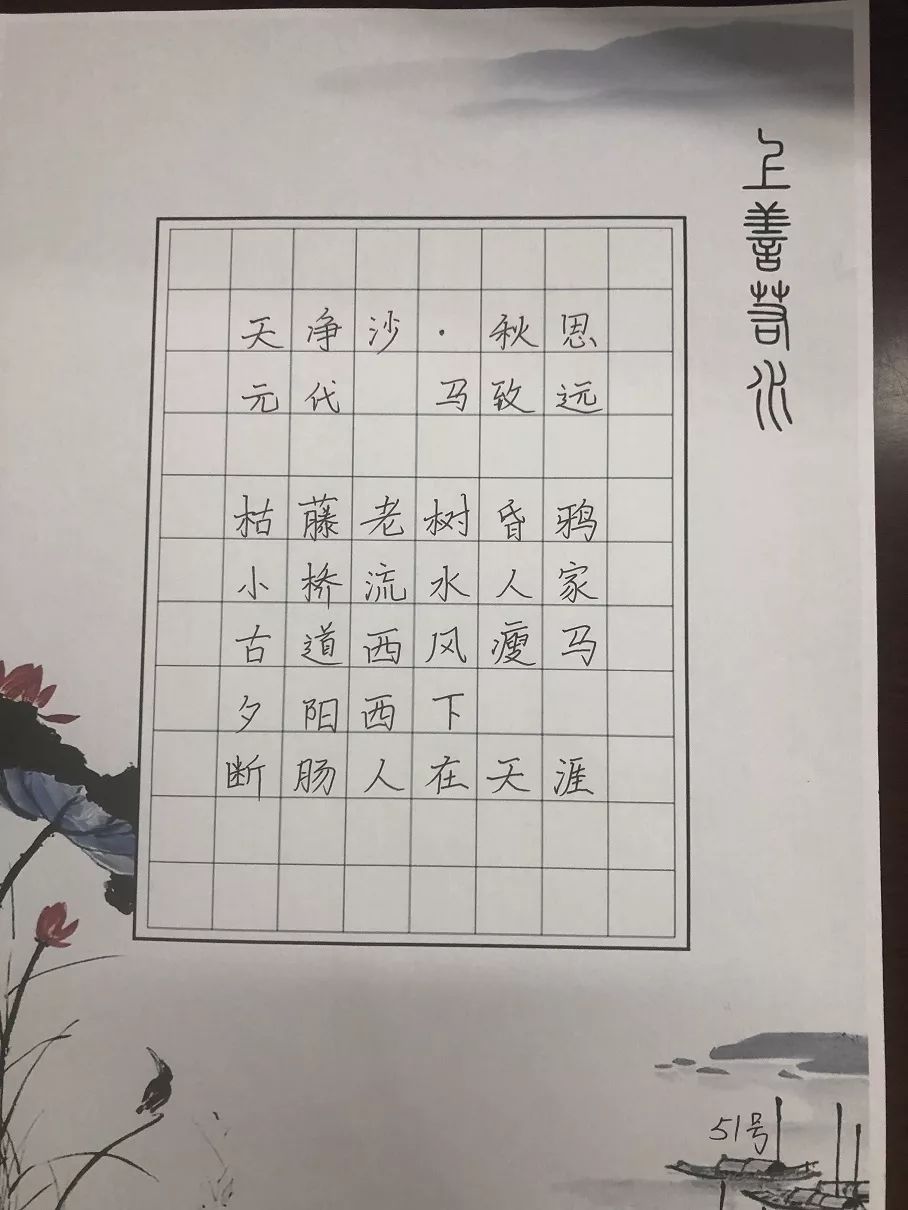 上善若水
天净沙·秋思
元代 马致远
枯藤老树昏鸦
小桥流水人家
古道西风瘦马
夕阳西下
断肠人在天涯
51号